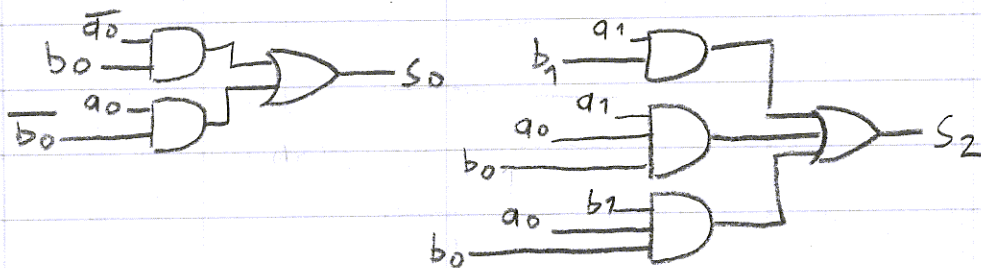 a̅0̅
b0
a0
b̅0̅
S0
a1
b1
a1
a0
b0
b1
a0
b0
S2